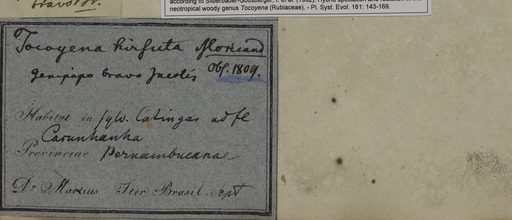 according to Silberbauer-Gottsberger, I. et al. (1992), Hybrid speciation and radiation in the
neotropical woody genus Tocoyena (Rubiaceae). - Pl. Syst. Evol. 181: 143-169.
Tocoyena hirsuta Moricand
genipapo bravo Incolis Obs. 1809.
Habitat in sylv. Catingas ad fl
Carunhanha
Provinciae Pernambucana
Dr Martius Iter Brasil. sept